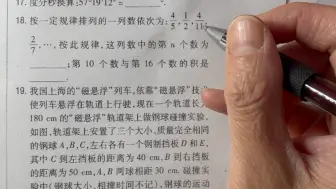 17. 度分秒换算:57°19′12″=______°.
18. 按一定规律排列的一列数依次为: 4/5, 1/2, 4/11,
2/7, …, 按此规律, 这列数中的第 n 个数为
______; 第 10 个数与第 16 个数的积是
______.
19. 我国上海的“磁悬浮”列车, 依靠“磁悬浮”技
使列车悬浮在轨道上行驶, 现在一个轨道长
180 cm 的“磁悬浮”轨道架上做钢球碰撞实验,
如图, 轨道架上安置了三个大小、质量完全相同
的钢球 A, B, C, 左右各有一个钢制挡板 D 和 E,
其中 C 到左挡板的距离为 40 cm, B 到右挡板
的距离为 50 cm, A, B 两球相距 30 cm. 碰撞实
验中(钢球大小、相撞时间不记), 钢球的运动